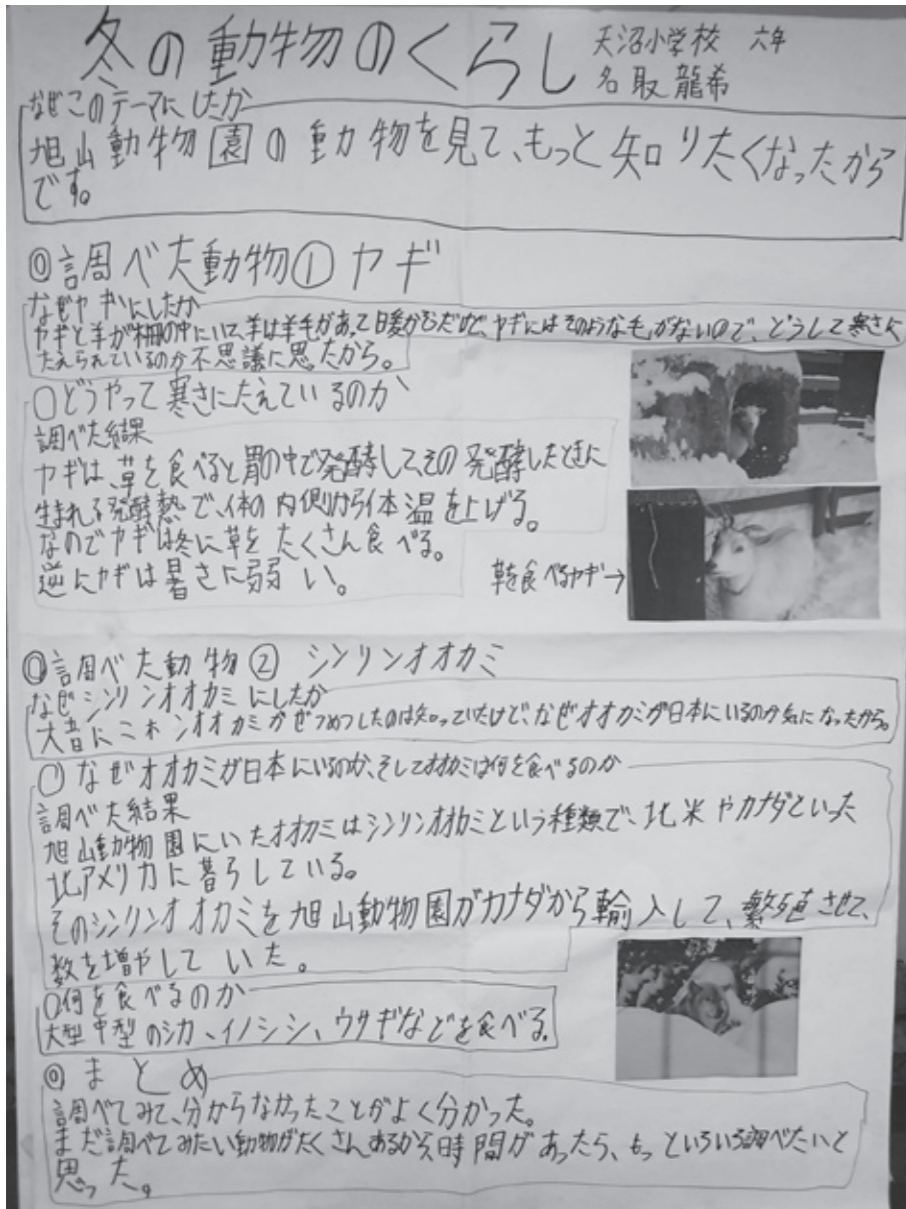 冬の動物のくらし
天沼小学校 六年
名取 龍希
なぜこのテーマにしたか
旭山動物園の動物を見て、もっと知りたくなったから
です。
◎調べた動物① ヤギ
なぜヤギにしたか
ヤギと羊が柵の中にいて、羊は羊毛があって暖かそうだけど、ヤギにはそのような毛がないので、どうして寒さに
たえられているのか不思議に思ったから。
○どうやって寒さにたえているのか
調べた結果
ヤギは、草を食べると胃の中で発酵して、その発酵したときに
生まれる発酵熱で、体の内側から体温を上げる。
なのでヤギは冬に草をたくさん食べる。
逆にヤギは暑さに弱い。
草を食べるヤギ→
◎調べた動物② シンリンオオカミ
なぜシンリンオオカミにしたか
大昔にニホンオオカミがぜつめつしたのは知っていたけど、なぜオオカミが日本にいるのか気になったから。
○なぜオオカミが日本にいるのか、そしてオオカミは何を食べるのか
調べた結果
旭山動物園にいたオオカミはシンリンオオカミという種類で、北米やカナダといった
北アメリカに暮らしている。
そのシンリンオオカミを旭山動物園がカナダから輸入して、繁殖させて、
数を増やしていた。
○何を食べるのか
大型中型のシカ、イノシシ、ウサギなどを食べる。
◎まとめ
調べてみて、分からなかったことがよく分かった。
まだ調べてみたい動物がたくさんあるから、時間があったら、もっといろいろ調べたいと
思った。